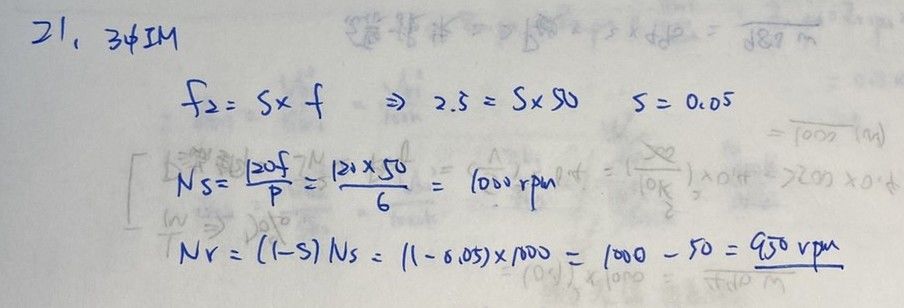 21. 3ϕIM
f₂ = S × f ⇒ 2.5 = S × 50 S = 0.05
Ns = 120f/P = 120 × 50/6 = 1000 rpm
Nr = (1-S) Ns = (1-0.05) × 1000 = 1000 - 50 = 950 rpm